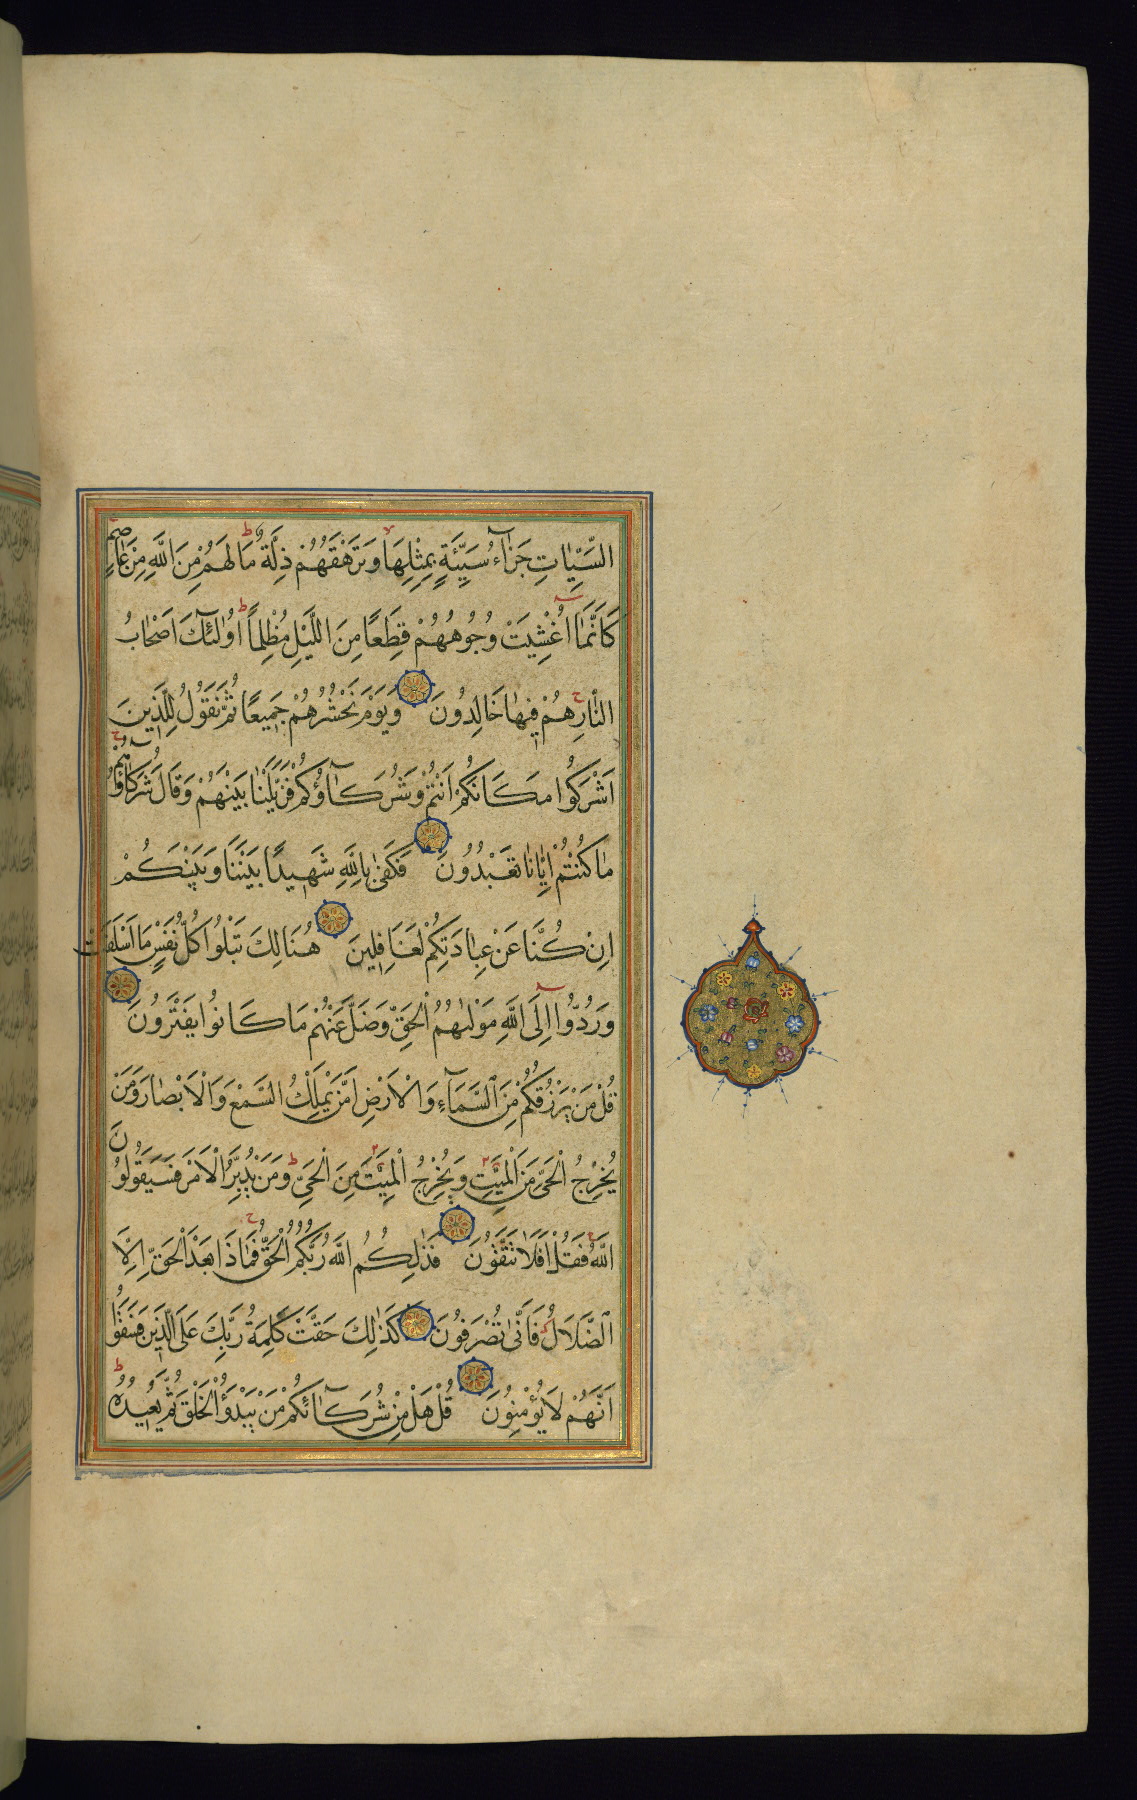 السَّيِّاٰتِ جَزَٓاءُ سَيِّئَةٍ بِمِثْلِهَا وَتَرْهَقُهُمْ ذِلَّةٌ مَا لَهُمْ مِنَ اللَّهِ مِنْ عَاصِمٍ
كَاَنَّمَٓا اُغْشِيَتْ وُجُوهُهُمْ قِطَعًا مِنَ اللَّيْلِ مُظْلِمًا اُولٰٓئِكَ اَصْحَابُ
النَّارِ هُمْ فِيهَا خَالِدُونَ وَيَوْمَ نَحْشُرُهُمْ جَمِيعًا ثُمَّ نَقُولُ لِلَّذِينَ
اَشْرَكُوا مَكَانَكُمْ اَنْتُمْ وَشُرَكَٓاؤُكُمْ فَزَيَّلْنَا بَيْنَهُمْ وَقَالَ شُرَكَٓاؤُهُمْ
مَا كُنْتُمْ اِيَّانَا تَعْبُدُونَ فَكَفٰى بِاللَّهِ شَهِيدًا بَيْنَنَا وَبَيْنَكُمْ
اِنْ كُنَّا عَنْ عِبَادَتِكُمْ لَغَافِلِينَ هُنَالِكَ تَبْلُوا كُلُّ نَفْسٍ مَا اَسْلَفَتْ
وَرُدُّٓوا اِلَى اللَّهِ مَوْلٰيهُمُ الْحَقِّ وَضَلَّ عَنْهُمْ مَا كَانُوا يَفْتَرُونَ
قُلْ مَنْ يَرْزُقُكُمْ مِنَ السَّمَٓاءِ وَالْاَرْضِ اَمَّنْ يَمْلِكُ السَّمْعَ وَالْاَبْصَارَ وَمَنْ
يُخْرِجُ الْحَىَّ مِنَ الْمَيِّتِ وَيُخْرِجُ الْمَيِّتَ مِنَ الْحَىِّ وَمَنْ يُدَبِّرُ الْاَمْرَ فَسَيَقُولُونَ
اللَّهُ فَقُلْ اَفَلَا تَتَّقُونَ فَذٰلِكُمُ اللَّهُ رَبُّكُمُ الْحَقُّ فَمَاذَا بَعْدَ الْحَقِّ اِلَّا
الضَّلَالُ فَاَنّٰى تُصْرَفُونَ كَذٰلِكَ حَقَّتْ كَلِمَةُ رَبِّكَ عَلَى الَّذِينَ فَسَقُٓوا
اَنَّهُمْ لَا يُؤْمِنُونَ قُلْ هَلْ مِنْ شُرَكَٓائِكُمْ مَنْ يَبْدَؤُا الْخَلْقَ ثُمَّ يُعِيدُهُ